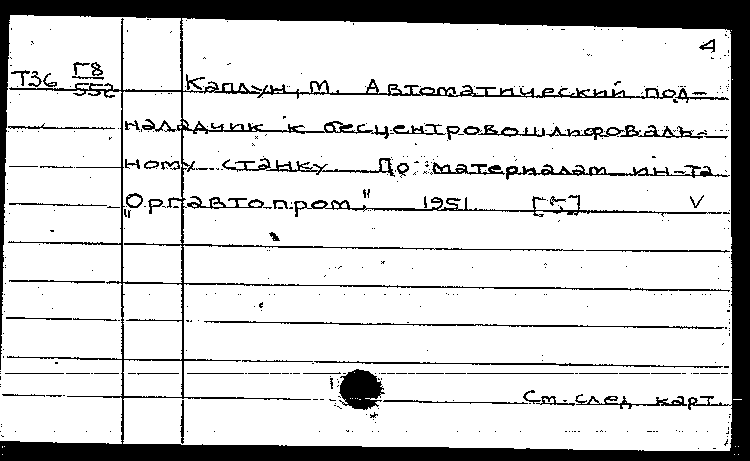 4
Т36 Г8/552 Каплун, М. Автоматический под-
наладчик к бесцентровошлифоваль-
ному станку По материалам ин-та
"Оргавтопром". 1951. [5] V
См. след карт.